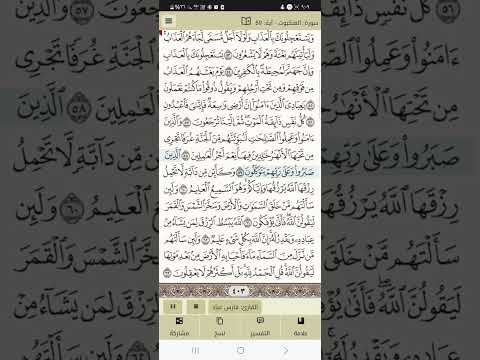 سورة: العنكبوت - آية: 60
وَيَسْتَعْجِلُونَكَ بِٱلْعَذَابِ وَلَوْلَآ أَجَلٌ مُّسَمًّى لَّجَآءَهُمُ ٱلْعَذَابُ
وَلَيَأْتِيَنَّهُم بَغْتَةً وَهُمْ لَا يَشْعُرُونَ ٥٣ يَسْتَعْجِلُونَكَ بِٱلْعَذَابِ
وَإِنَّ جَهَنَّمَ لَمُحِيطَةٌۢ بِٱلْكَٰفِرِينَ ٥٤ يَوْمَ يَغْشَىٰهُمُ ٱلْعَذَابُ
مِن فَوْقِهِمْ وَمِن تَحْتِ أَرْجُلِهِمْ وَيَقُولُ ذُوقُوا۟ مَا كُنتُمْ تَعْمَلُونَ
٥٥ يَٰعِبَادِىَ ٱلَّذِينَ ءَامَنُوٓا۟ إِنَّ أَرْضِى وَٰسِعَةٌ فَإِيَّٰىَ فَٱعْبُدُونِ
٥٦ كُلُّ نَفْسٍ ذَآئِقَةُ ٱلْمَوْتِ ثُمَّ إِلَيْنَا تُرْجَعُونَ ٥٧ وَٱلَّذِينَ
ءَامَنُوا۟ وَعَمِلُوا۟ ٱلصَّٰلِحَٰتِ لَنُبَوِّئَنَّهُم مِّنَ ٱلْجَنَّةِ غُرَفًا تَجْرِى
مِن تَحْتِهَا ٱلْأَنْهَٰرُ خَٰلِدِينَ فِيهَا نِعْمَ أَجْرُ ٱلْعَٰمِلِينَ ٥٨ ٱلَّذِينَ
صَبَرُوا۟ وَعَلَىٰ رَبِّهِمْ يَتَوَكَّلُونَ ٥٩ وَكَأَيِّن مِّن دَآبَّةٍ لَّا تَحْمِلُ
رِزْقَهَا ٱللَّهُ يَرْزُقُهَا وَإِيَّاكُمْ وَهُوَ ٱلسَّمِيعُ ٱلْعَلِيمُ ٦٠ وَلَئِن
سَأَلْتَهُم مَّنْ خَلَقَ ٱلسَّمَٰوَٰتِ وَٱلْأَرْضَ وَسَخَّرَ ٱلشَّمْسَ وَٱلْقَمَرَ
لَيَقُولُنَّ ٱللَّهُ فَأَنَّىٰ يُؤْفَكُونَ ٦١ ٱللَّهُ يَبْسُطُ ٱلرِّزْقَ لِمَن يَشَآءُ مِنْ
عِبَادِهِۦ وَيَقْدِرُ لَهُۥٓ إِنَّ ٱللَّهَ بِكُلِّ شَىْءٍ عَلِيمٌ ٦٢ وَلَئِن سَأَلْتَهُم
مَّن نَّزَّلَ مِنَ ٱلسَّمَآءِ مَآءً فَأَحْيَا بِهِ ٱلْأَرْضَ مِنۢ بَعْدِ مَوْتِهَا
لَيَقُولُنَّ ٱللَّهُ قُلِ ٱلْحَمْدُ لِلَّهِ بَلْ أَكْثَرُهُمْ لَا يَعْقِلُونَ ٦٣
٤٠٣
القارئ: فارس عباد
علامة
التفسير
نسخ
مشاركة